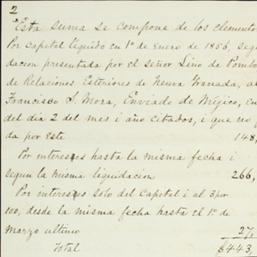 2
Esta suma se compone de los elemento
Por capital líquido en 1º de Enero de 1856, segu
dacion presentada por el señor Lino de Pombo
de Relaciones Esteriores de Nueva Granada, a
Francisco S. Mora, Enviado de Méjico, en
del dia 2 del mes i año citados, i que no
da por este 148,
Por intereses hasta la misma fecha i
segun la misma liquidacion 266,
Por intereses solo del Capital i al 3 por
100, desde la misma fecha hasta el 1º de
Marzo ultimo 27,
Total $443,